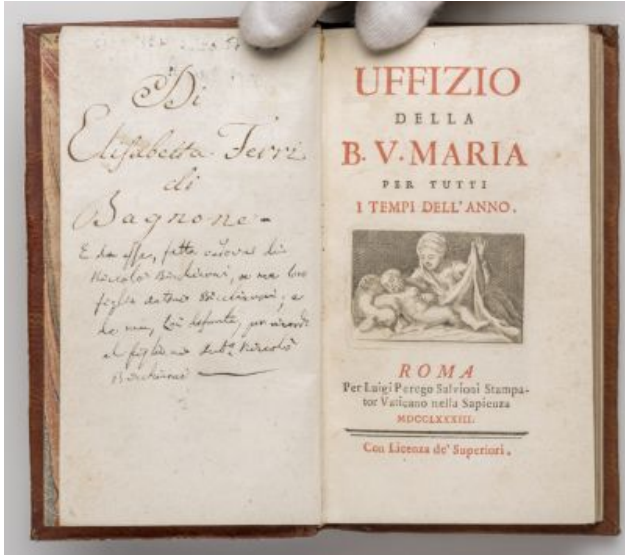 Di
Elisabetta Ferri
di
Bagnone =
E da essa, fatta
Niccolò
figlia
da me, Lei defunta, per ricordo
al figlio mio Niccolò
UFFIZIO
DELLA
B. V. MARIA
PER TUTTI
I TEMPI DELL' ANNO.
ROMA
Per Luigi Perego Salvioni Stampa-
tor Vaticano nella Sapienza
MDCCLXXXIII.
Con Licenza de' Superiori.